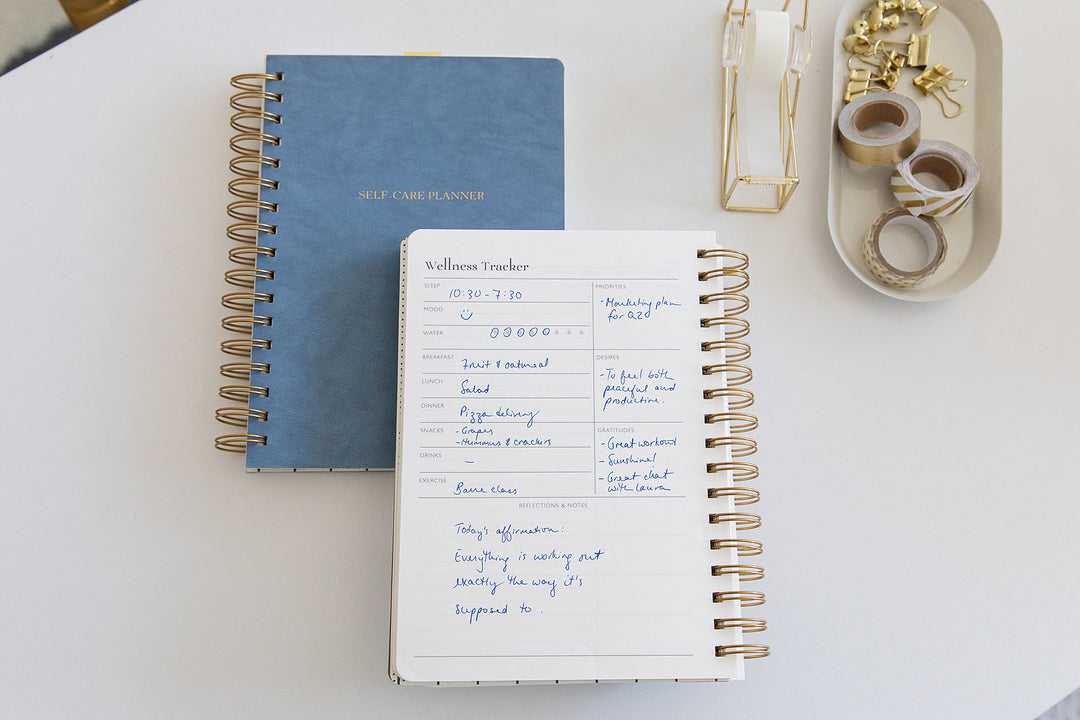 SELF-CARE PLANNER
Wellness Tracker
SLEEP 10:30 - 7:30
MOOD
WATER
BREAKFAST Fruit & oatmeal
LUNCH Salad
DINNER Pizza delivery
SNACKS - Grapes
- Hummus & crackers
DRINKS —
EXERCISE Barre class
PRIORITIES
- Marketing plan
for Q2
DESIRES
- To feel both
peaceful and
productive.
GRATITUDES
- Great workout
- Sunshine!
- Great chat
with Laura
REFLECTIONS & NOTES
Today's affirmation:
Everything is working out
exactly the way it's
supposed to.